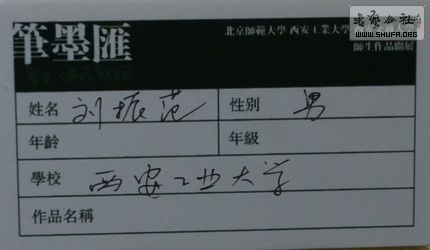 筆墨匯
北京師範大學 西安工業大學
師生作品聯展
書藝公社
WWW.SHUFA.ORG
姓名 刘振范 性别 男
年齡 年級
學校 西安工业大学
作品名稱